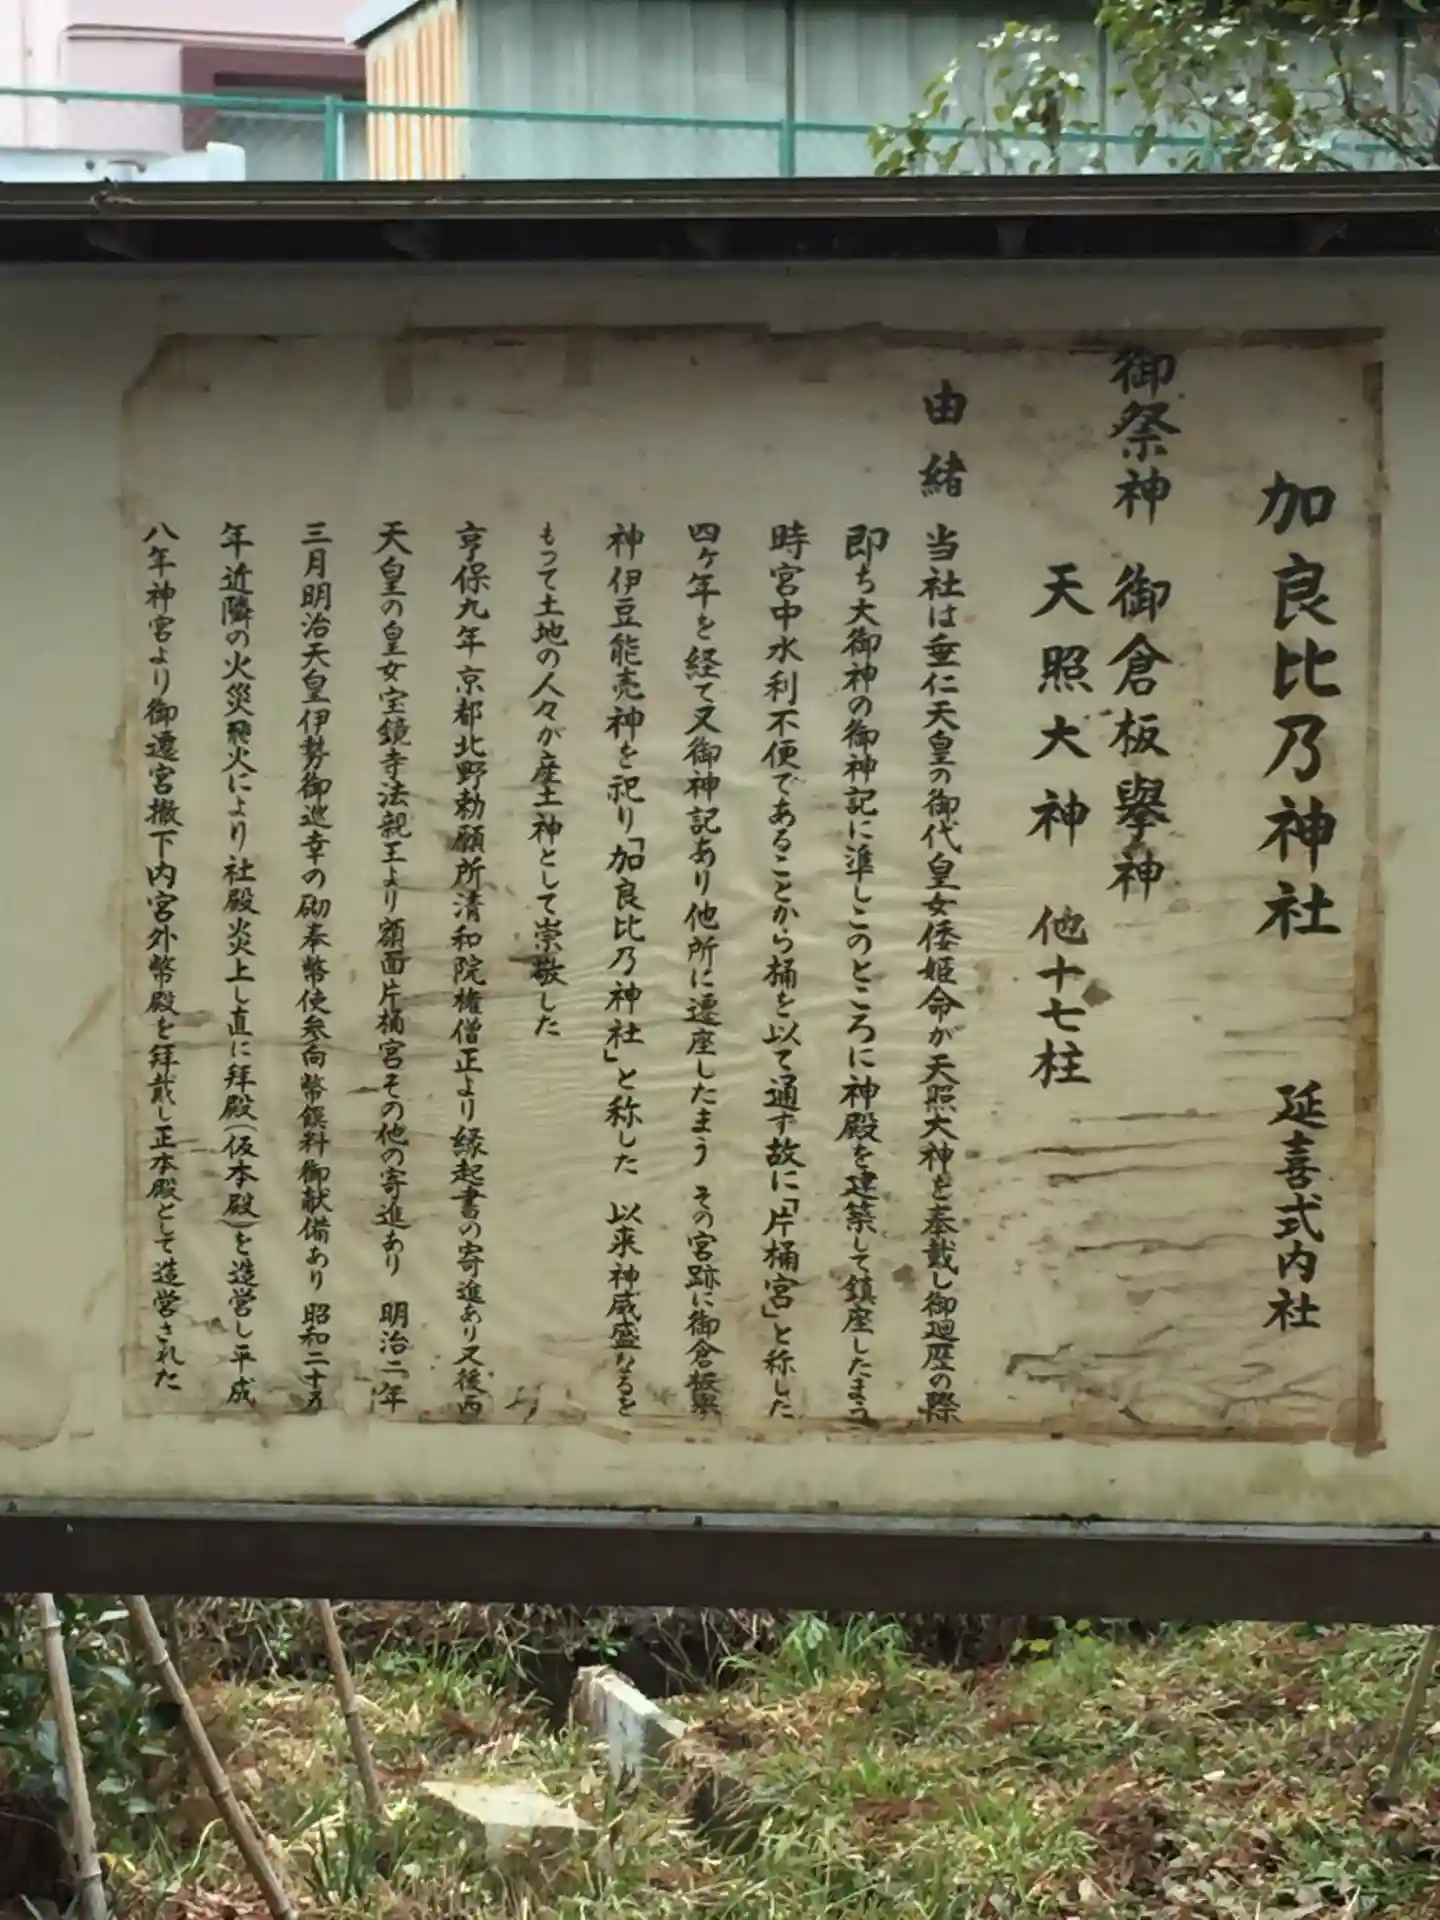 加良比乃神社　延喜式内社
御祭神　御倉板擧神
天照大神　他十七柱
由緒　当社は垂仁天皇の御代皇女倭姫命が天照大神を奉戴し御廻歴の際
即ち大御神の御神記に準しこのところに神殿を建築して鎮座したまう
時宮中水利不便であることから桶を以て通す故に「片桶宮」と称した
四ケ年を経て又御神記あり他所に遷座したまう　その宮跡に御倉板擧
神伊豆能売神を祀り「加良比乃神社」と称した　以来神威盛なるを
もって土地の人々が産土神として崇敬した
亨保九年京都北野勅願所清和院権僧正より縁起書の寄進あり又後西
天皇の皇女宝鏡寺法親王より額面片桶宮その他の寄進あり　明治二年
三月明治天皇伊勢御巡幸の砌奉幣使参向幣饌料御献備あり　昭和二十五
年近隣の火災飛火により社殿炎上し直に拝殿(仮本殿)を造営し平成
八年神宮より御遷宮撤下内宮外幣殿を拝戴し正本殿として造営された